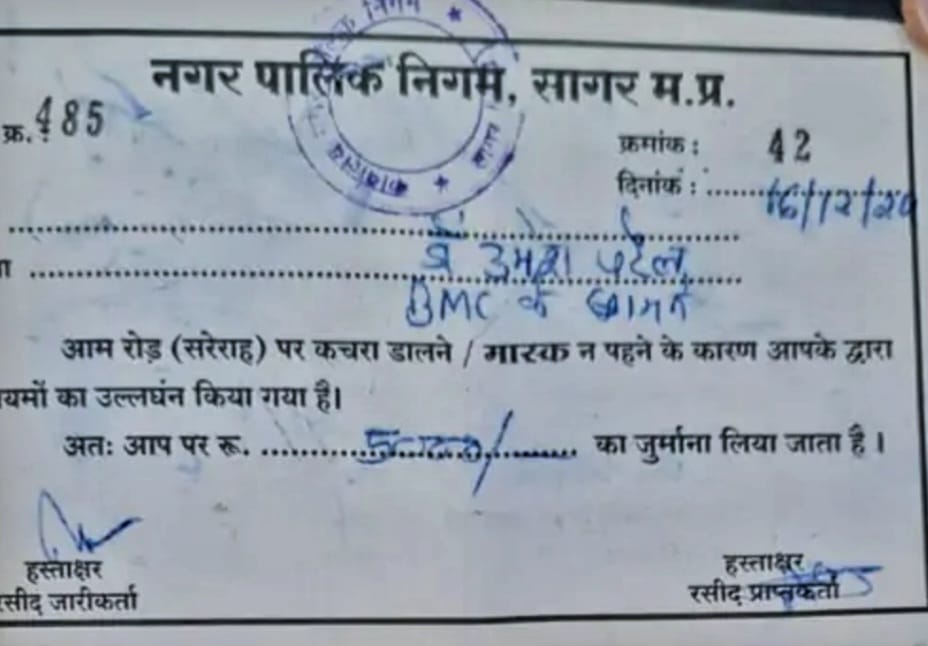 नगर पालिक निगम, सागर म.प्र.
क्र. 485
क्रमांक : 42
दिनांक : 16/12/20
डॉ उमेश पटेल
BMC के सामने
आम रोड़ (सरेराह) पर कचरा डालने / मास्क न पहने के कारण आपके द्वारा
यमों का उल्लघंन किया गया है।
अतः आप पर रू. 5000/ का जुर्माना लिया जाता है ।
हस्ताक्षर
रसीद जारीकर्ता
हस्ताक्षर
रसीद प्राप्तकर्ता